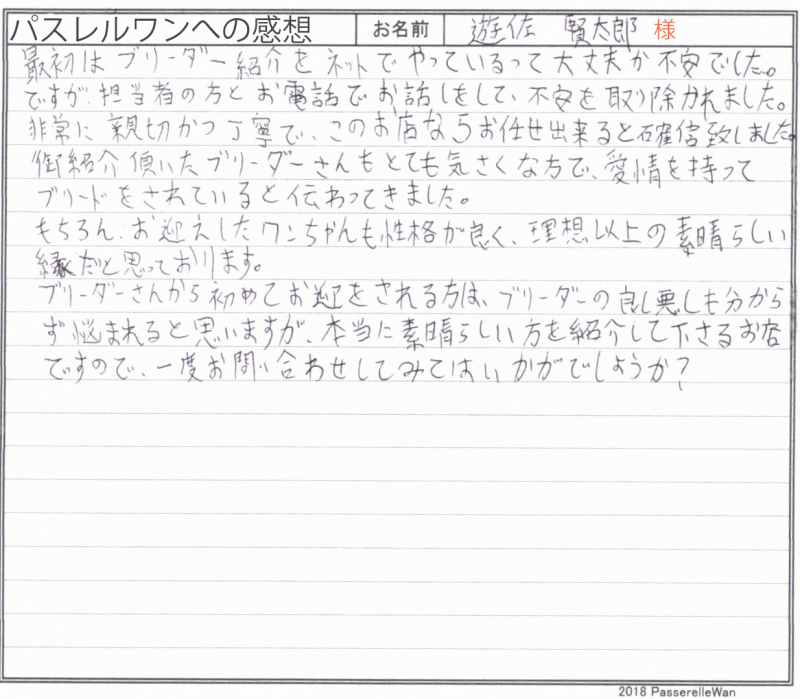 パスレルワンへの感想 お名前 遊佐 賢太郎 様
最初はブリーダー紹介をネットでやっているって大丈夫か不安でした。
ですが、担当者の方とお電話でお話しをして、不安を取り除かれました。
非常に親切かつ丁寧で、このお店ならお任せ出来ると確信致しました。
御紹介頂いたブリーダーさんもとても気さくな方で、愛情を持って
ブリードをされていると伝わってきました。
もちろん、お迎えしたワンちゃんも性格が良く、理想以上の素晴らしい
縁だと思っております。
ブリーダーさんから初めてお迎をされる方は、ブリーダーの良し悪しも分から
ず悩まれると思いますが、本当に素晴らしい方を紹介して下さるお店
ですので、一度お問い合わせしてみてはいかがでしょうか?
2018 PasserelleWan